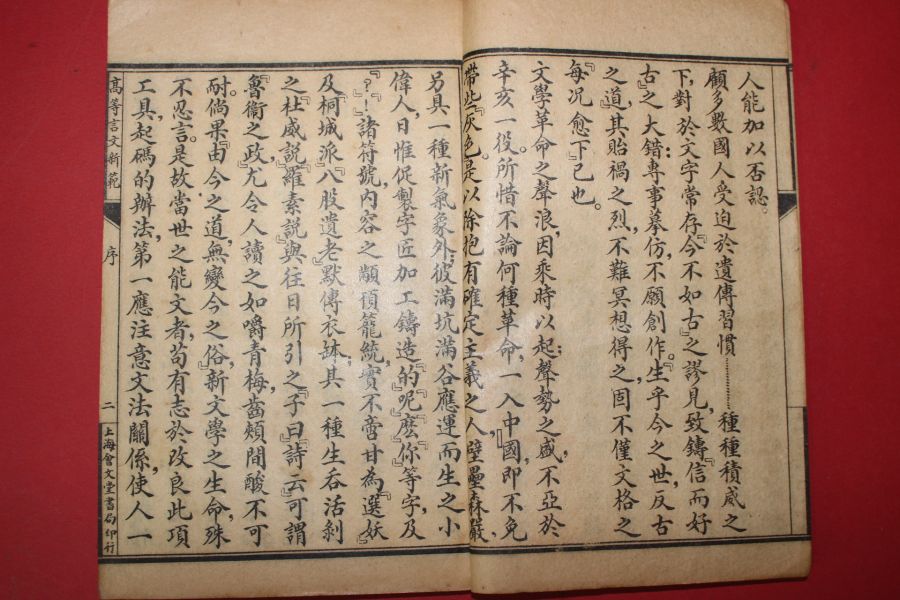 人能加以否認。
顧多數國人受迫於遺傳習慣…………種種積威之
下,對於文字常存『今不如古』之謬見,致鑄『信而好
古』之大錯;專事摹仿,不願創作。『生乎今之世,反古
之道』,其貽禍之烈,不難冥想得之;固不僅文格之
『每況愈下』已也。
文學革命之聲浪,因乘時以起;聲勢之盛,不亞於
辛亥一役。所惜不論何種革命,一入中國,即不免
帶些『灰色』。是以除抱有確定主義之人,壁壘森嚴,
另具一種新氣象外;彼滿坑滿谷應運而生之小
偉人,日惟促製字匠加工鑄造『的』『呢』『麼』『你』等字,及
『?』『!』諸符號,內容之顢頇籠統,實不啻甘為『選妖』
及桐城派『八股遺老』默傳衣缽;其一種生吞活剝
之『杜威說』『羅素說』與往日所引之『子曰』『詩云』可謂
『魯衛之政』。尤令人讀之如嚼青梅,齒頰間酸不可
耐。倘果『由今之道,無變今之俗』,新文學之生命,殊
不忍言。是故當世之能文者,苟有志於改良此項
工具,起碼的辦法,第一應注意文法關係,使人一
高等言文新範 序 二 上海會文堂書局印行